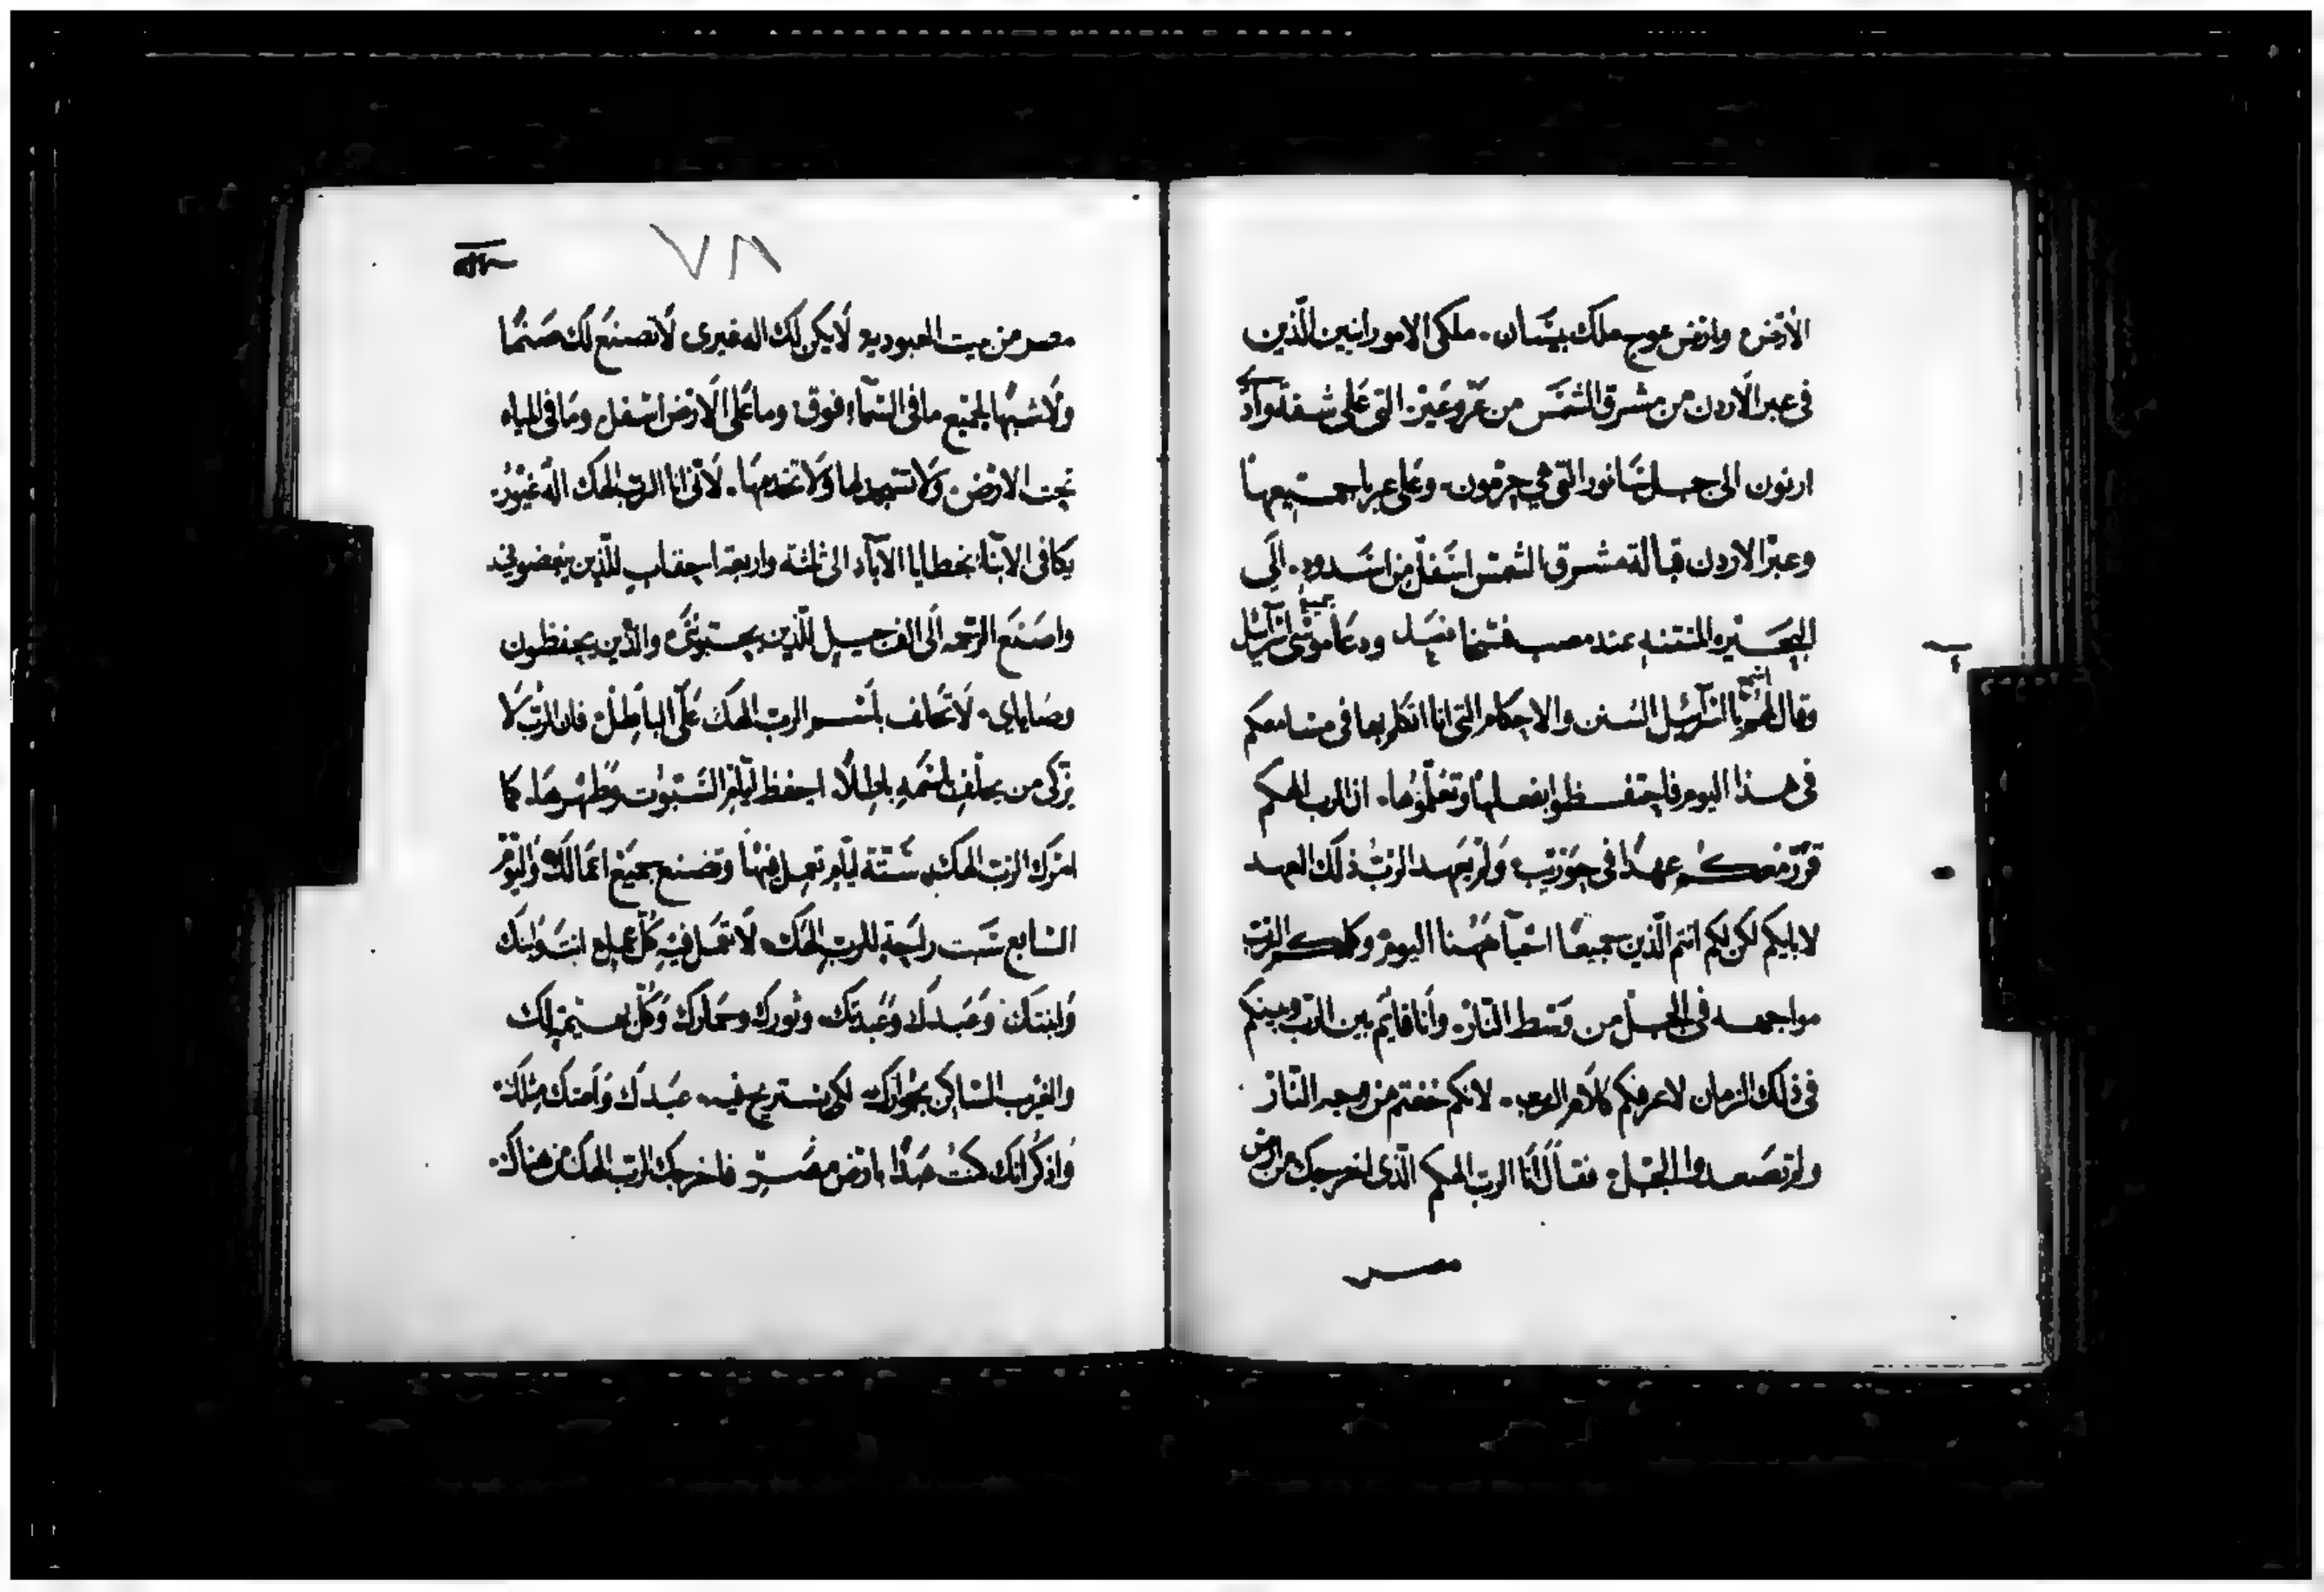 الأرض وارض عوج ملك بيسان. ملكي الامورانيين الذين
في عبر الاردن من مشرق الشمس من عروعير التي على شفة وادي
ارنون الى جبل سانور التي هي حرمون. وعلى عربا جميعها
وعبر الاردن قبالة مشرق الشمس اسفل من اسدود. الى
البحيره المنتنه عند مصب فسما فصل ودعا موسى جميع اسرآيل
وقال لهم اسمع يا اسرآيل السنن والاحكام التي انا اتكلم بها في مسامعكم
في هذا اليوم فاحتفظوا بفعلها وتعلموها. ان الرب الهكم
قرر معكم عهدًا في حوريب ولم يعهد الرب ذلك العهد
لابايكم لكن لكم انتم الذين جميعًا احيآ ههنا اليوم وكلمكم الرب
مواجهه في الجبل من وسط النار. وأنا قايم بين الرب وبينكم
في ذلك الزمان لاعرفكم كلام الرب. لانكم خفتم من وجه النار
ولم تصعدوا الجبل فقال أنا الرب الهكم الذي اخرجك من ارض
مصر
٧٨
مصر من بيت العبوديه لا يكن لك اله غيري لا تصنع لك صنمًا
ولا شبهًا لجميع ما في السمآء فوق وما على الارض اسفل وما في المياه
تحت الارض ولا تسجد لها ولا تخدمها. لأني انا الرب الهك اله غيور.
يكافى الابنا بخطايا الآبآء الى ثلثة واربعة احقاب للذين يبغضوني
واصنع الرحمه الى الف جيل للذين يحبوني والذين يحفظون
وصاياي. لا تحلف باسم الرب الهك على الباطل فان الرب لا
يزكى من يحلف باسمه باطلًا. احفظ ايام السبوت وطهرها. كما
امرك الرب الهك ستة ايام تعمل فيها وتصنع جميع اعمالك واليوم
السابع سبت راحة للرب الهك. لا تعمل فيه كل عمل انت وابنك
وابنتك وعبدك وعبدتك. وثورك وحمارك وكل بهيمة لك
والغريب الساكن بجوارك لكي نستريح فيه. عبدك وامتك مثلك.
واذكر انك كنت عبدًا بارض مصر فاخرجك الرب الهك من هناك.